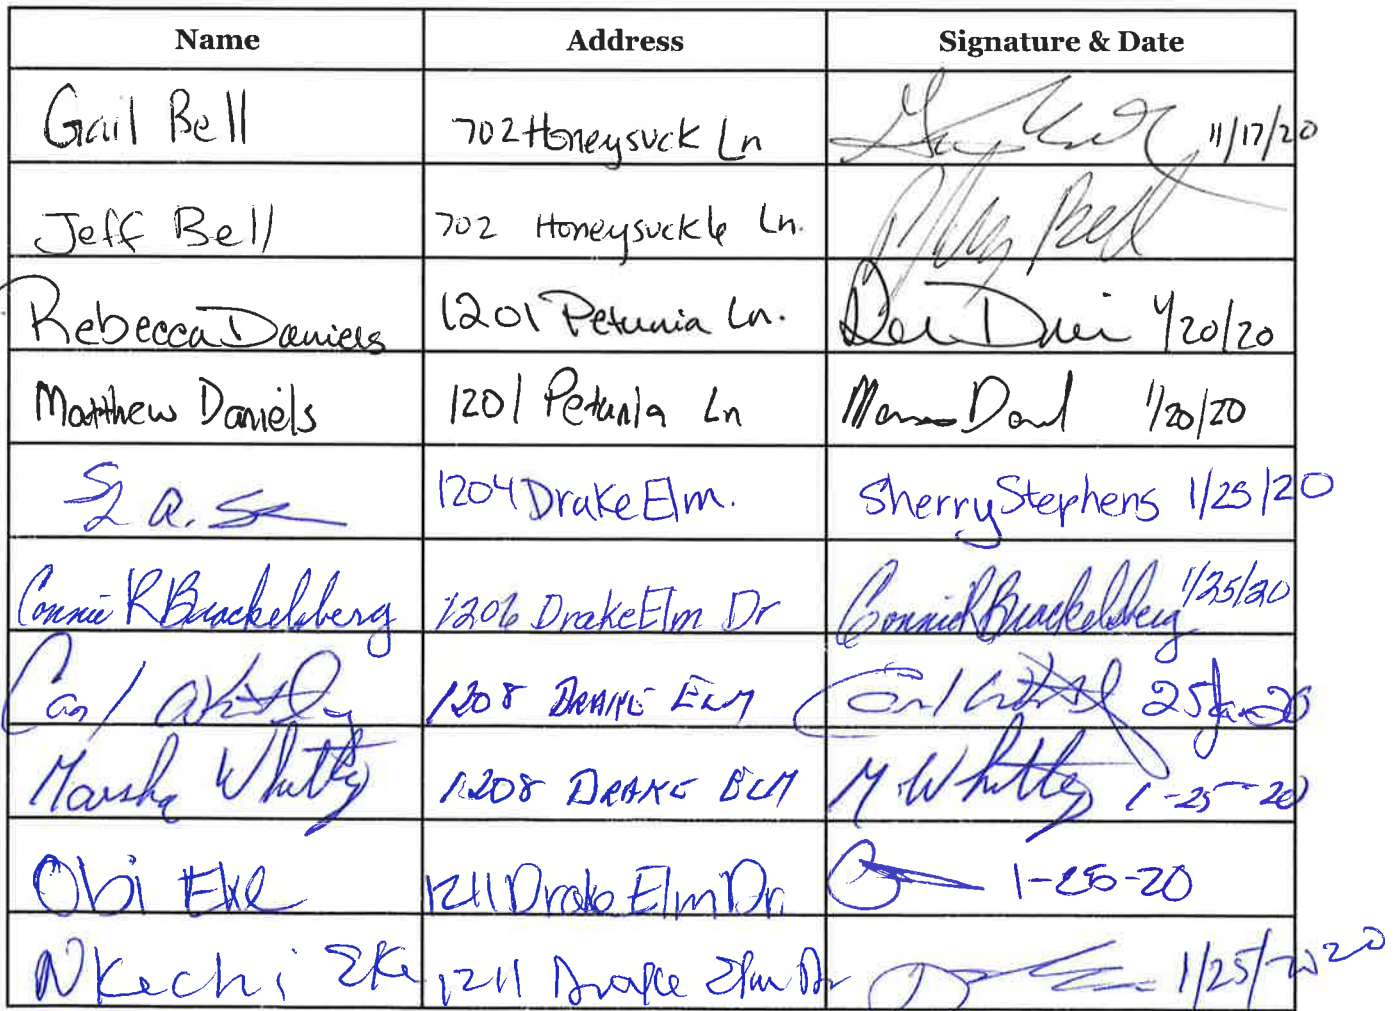 Name Address Signature & Date
Gail Bell 702 Honeysuck Ln 11/17/20
Jeff Bell 702 Honeysuckle Ln. Bell
Rebecca Daniels 1201 Petunia Ln. 1/20/20
Matthew Daniels 1201 Petunia Ln 1/20/20
1204 Drake Elm. Sherry Stephens 1/25/20
Connie R Brackelsberg 1206 Drake Elm Dr Connie R Brackelsberg 1/25/20
Carl 1208 DRAKE ELM Carl 25 Jan 20
Marsha Whittey 1208 DRAKE ELM M Whittey 1-25-20
Obi Eke 1211 Drake Elm Dr. 1-25-20
Nkechi Eke 1211 Drake Elm Dr 1/25/2020